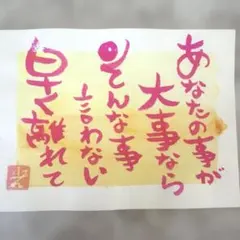 あなたの事が
大事なら
そんな事
言わない
早く離れて